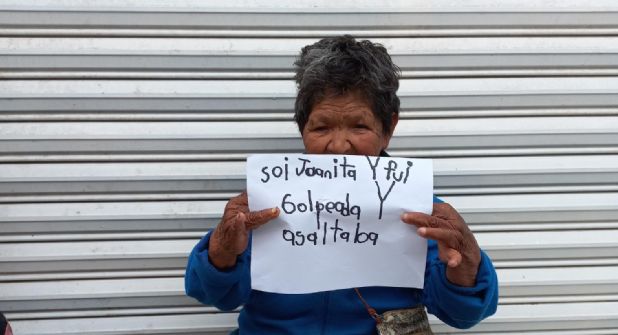 soi Juanita Y fui
Golpeada Y
asaltaba